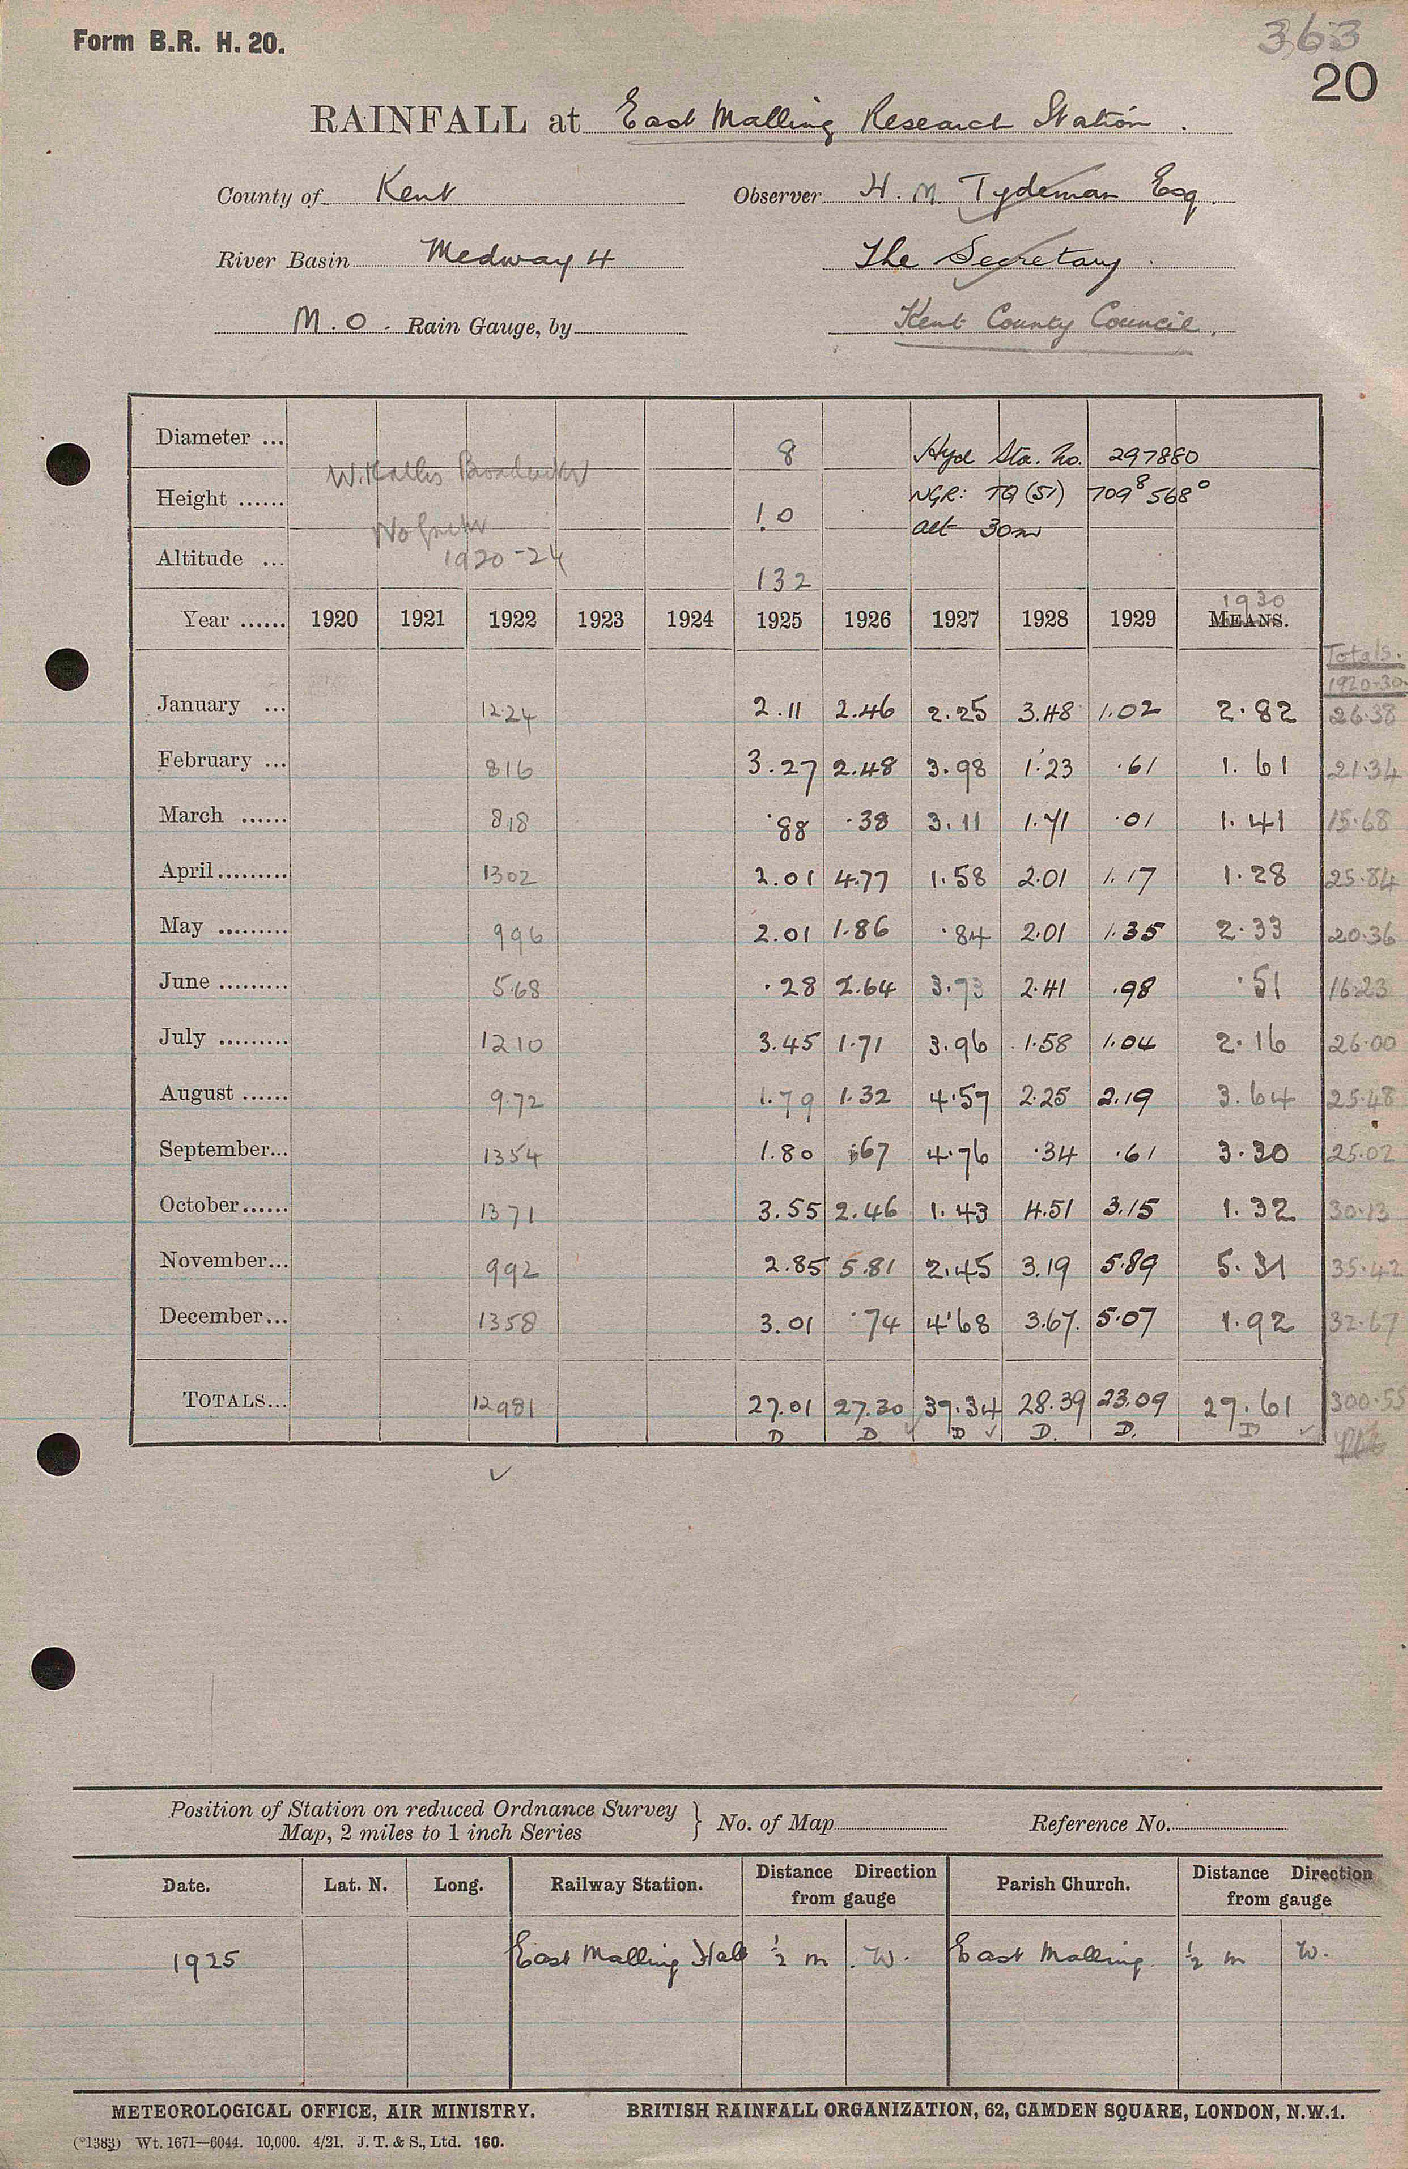 Form B.R. H. 20.
363
20
RAINFALL at East Malling Research Station.
County of Kent
Observer H. M. Tydeman Esq.
River Basin Medway 4
The Secretary.
M.O. Rain Gauge, by
Kent County Council.
Diameter ... 8 Hyd Sta. No. 297880
Height ...... 1.0 NGR: TQ (51) 709⁸ 568⁰
1920-24 alt 30m
Altitude ... 132
1930
Year ...... 1920 1921 1922 1923 1924 1925 1926 1927 1928 1929 MEANS.
Totals.
1920-30
January ... 12.24 2.11 2.46 2.25 3.48 1.02 2.82 26.38
February ... 816 3.27 2.48 3.98 1.23 .61 1.61 21.34
March ...... 818 .88 .38 3.11 1.71 .01 1.41 15.68
April ......... 1302 2.01 4.77 1.58 2.01 1.17 1.28 25.84
May ......... 996 2.01 1.86 .84 2.01 1.35 2.33 20.36
June ......... 5.68 .28 2.64 3.73 2.41 .98 .51 16.23
July ......... 1210 3.45 1.71 3.96 1.58 1.04 2.16 26.00
August ...... 9.72 1.79 1.32 4.57 2.25 2.19 3.64 25.48
September... 1354 1.80 .67 4.76 .34 .61 3.30 25.02
October...... 1371 3.55 2.46 1.43 4.51 3.15 1.32 30.13
November... 992 2.85 5.81 2.45 3.19 5.89 5.31 35.42
December... 1358 3.01 .74 4.68 3.67 5.07 1.92 32.67
TOTALS... 12981 27.01 27.30 37.34 28.39 23.09 27.61 300.55
D D D D. D. D
Position of Station on reduced Ordnance Survey
Map, 2 miles to 1 inch Series } No. of Map Reference No.
Date. Lat. N. Long. Railway Station. Distance Direction from gauge Parish Church. Distance Direction from gauge
1925 East Malling Halt ½ m W. East Malling. ½ m W.
METEOROLOGICAL OFFICE, AIR MINISTRY. BRITISH RAINFALL ORGANIZATION, 62, CAMDEN SQUARE, LONDON, N.W.1.
(*1383) Wt. 1671—6044. 10,000. 4/21. J. T. & S., Ltd. 160.